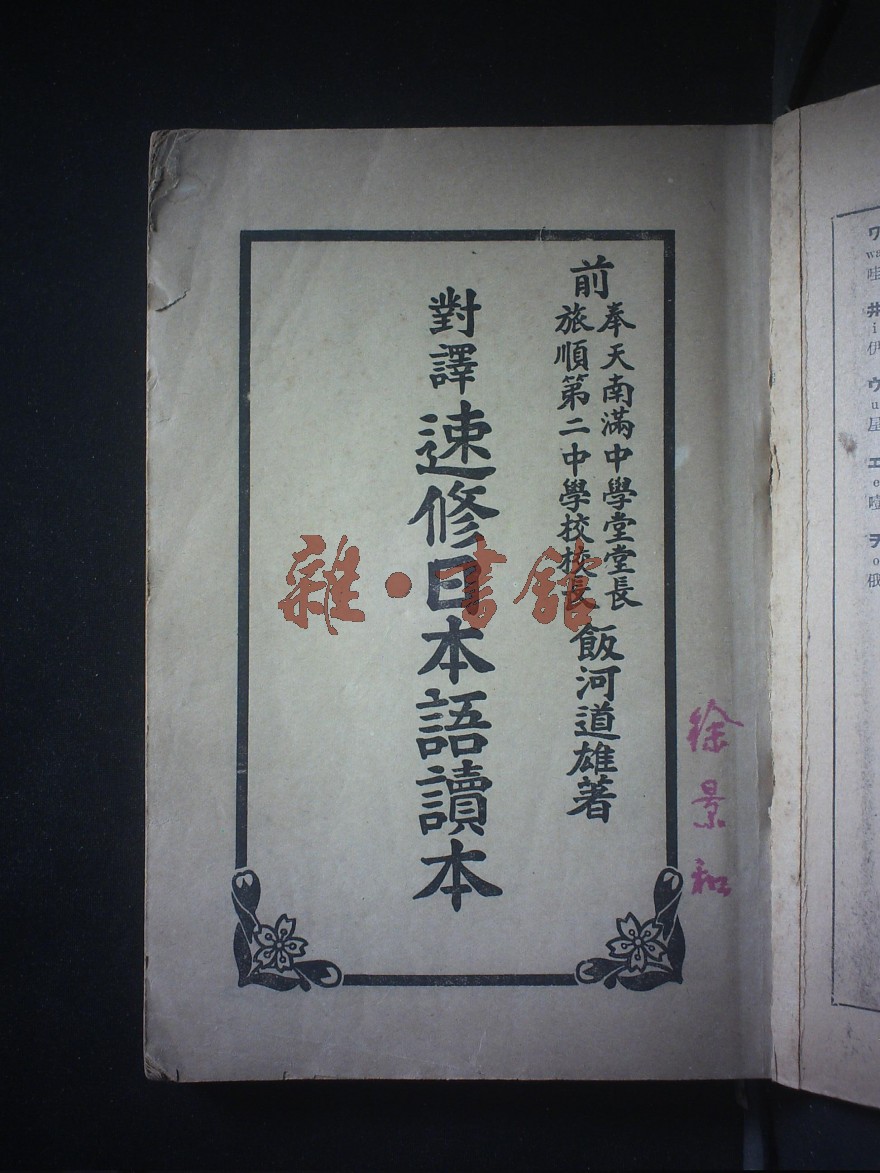 前
奉天南滿中學堂堂長
旅順第二中學校校長
飯河道雄著
對譯 速修日本語讀本
徐景和
雜·書館
wa
哇
井
i
伊
ウ
u
エ
e
o
俄